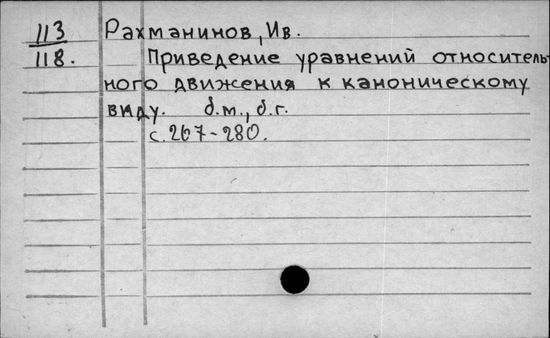 113 Рахманинов, Ив.
118. Приведение уравнений относитель-
ного движения к каноническому
виду. б.м., б.г.
с. 267-280.